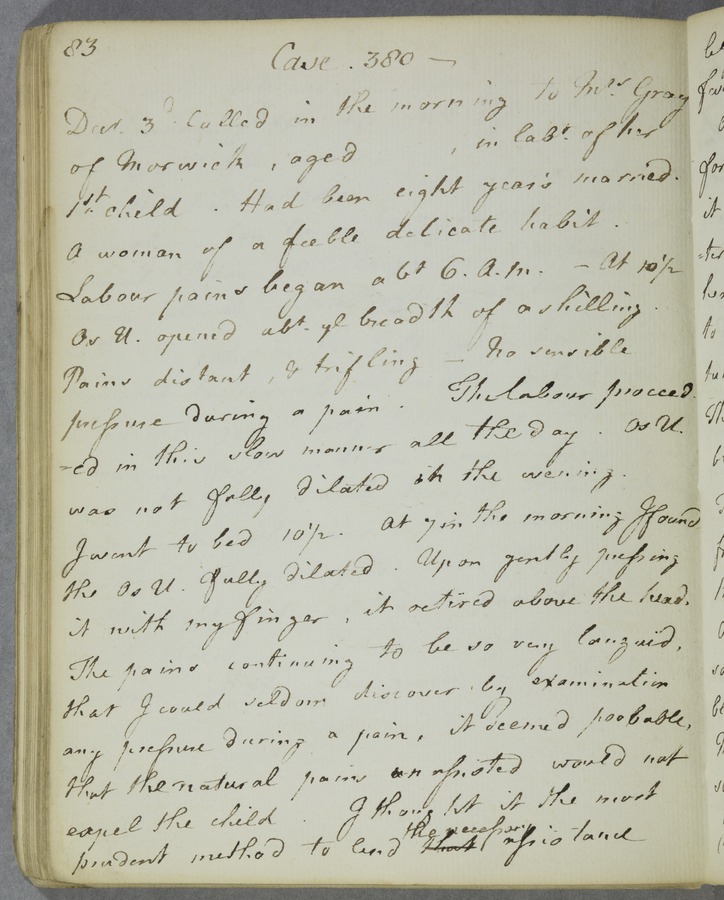 83
Case . 380 —
Decr. 3d. Called in the morning to Mrs Gray
of Morwick , aged , in labr. of her
1st. child . Had been eight years married.
A woman of a feeble delicate habit .
Labour pains began abt 6. A.m. — At 10 1/2
Os U. opened abt. ye breadth of a shilling .
Pains distant , & trifling — No sensible
pressure during a pain . The labour proceed
-ed in this slow manner all the day . Os U.
was not fully dilated in the evening .
I went to bed 10 1/2 . At 7 in the morning I found
the Os U. fully dilated . Upon gently pressing
it with my finger , it retired above the head.
The pains continuing to be so very languid,
that I could seldom discover by examination
any pressure during a pain , it seemed probable,
that the natural pains unassisted would not
expel the child . I thought it the most
prudent method to lend that the necessary assistance